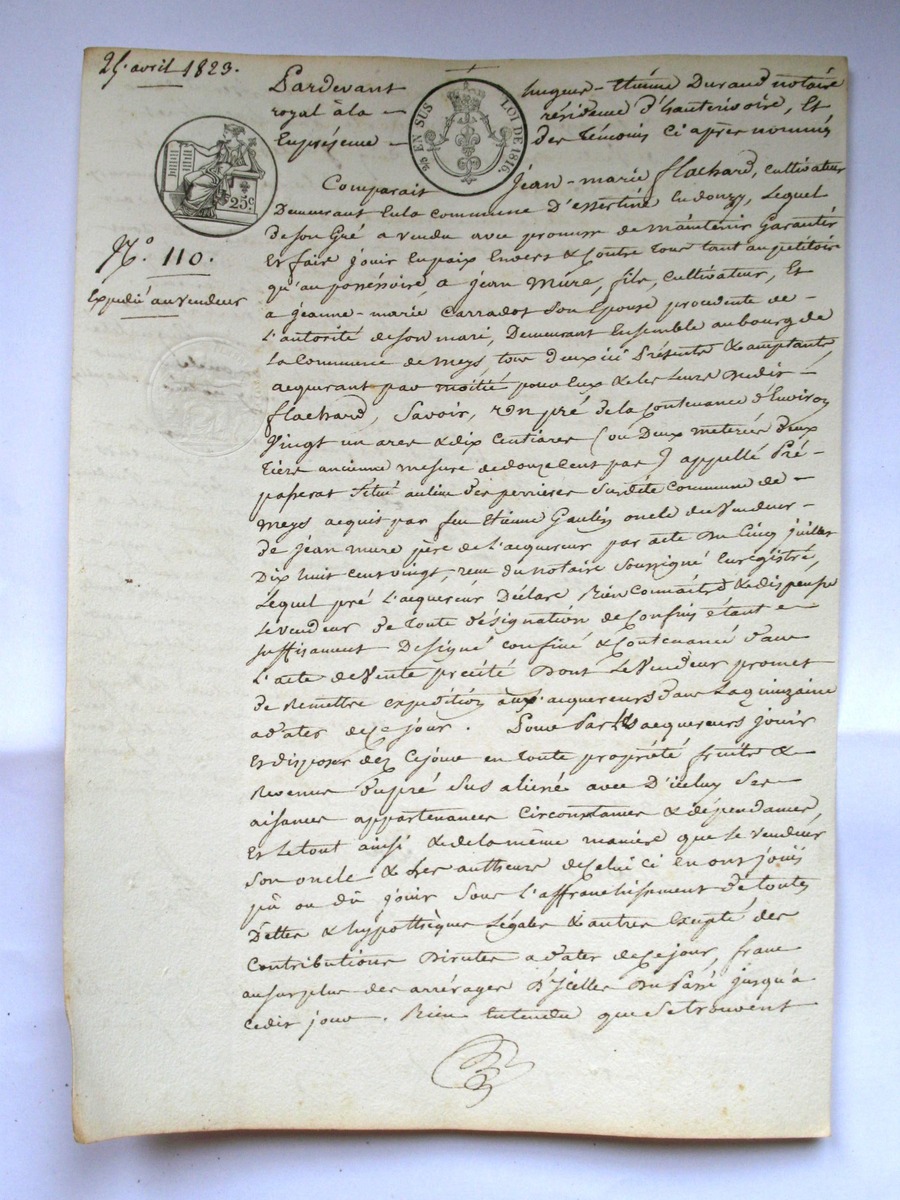 25. avril 1823.
Pardevant hugues-Etienne Durand notaire
royal à la résidence d'hauterivoire, Et
En présence des Témoins Ci après nommés
EN SUS
LOI DE 1816.
25c
Comparait Jean-marie flachard, cultivateur
Demeurant En la commune D'essertine En donzy, Lequel
De son Gré a vendu avec promesse de maintenir Garantir
Et faire Jouir En paix Envers & Contre Tous tant au pétitoire
N.° 110.
qu'au possessoire, a Jean Mure, fils, cultivateur, Et
Expedié au vendeur
a Jeanne-marie Carradot son Epouse procedente de
L'autorité de son mari, Demeurant Ensemble au bourg de
La Commune de Meys, tous deux ici Présents & acceptants,
acquérant par moitié pour Eux & les Leurs Dudit
flachard, Savoir, Un pré de la Contenance d'Environ
Vingt un ares & dix Centiares (ou Deux meterées d'eux
Tiers ancienne mesure de donze Cent pas) appellé Pré
paserat Situé au lieu des perrieres Susdite Commune de
Meys acquis par feu Etienne Gaulin oncle du Vendeur
de Jean mure père de l'acquereur par acte Du Cinq juillet
Dix huit cent vingt, recu du notaire Soussigné Enregistré,
Lequel pré L'acquereur Déclare Bien Connaitre & dispense
Le Vendeur De toute désignation de Confins étant
suffisament Designé confiné & Contenancé dans
L'acte de Vente précité Dont Le Vendeur promet
De Remettre expedition aux acquereurs dans La quinzaine
a dater de Ce jour. Pour Par les acquereurs jouir
Et disposer dez Cejour en toute propriété fruits &
Revenus Du pré Sus aliené avec D'iceluy Ses
aisances appartenances Circonstances & dépendances,
Et Le tout ainsi & de la même manière que le vendeur,
Son oncle & Les autheurs de Celui Ci En ont jouis
pû ou dû jouir Sous L'affranchissement de toutes
Dettes & hypothèques Légales & autres Excepté des
Contributions Directes a dater de Ce jour, franc
au surplus des arrérages D'Icelles Du Passé jusqu'à
cedit jour. Bien Entendu que Se trouvent